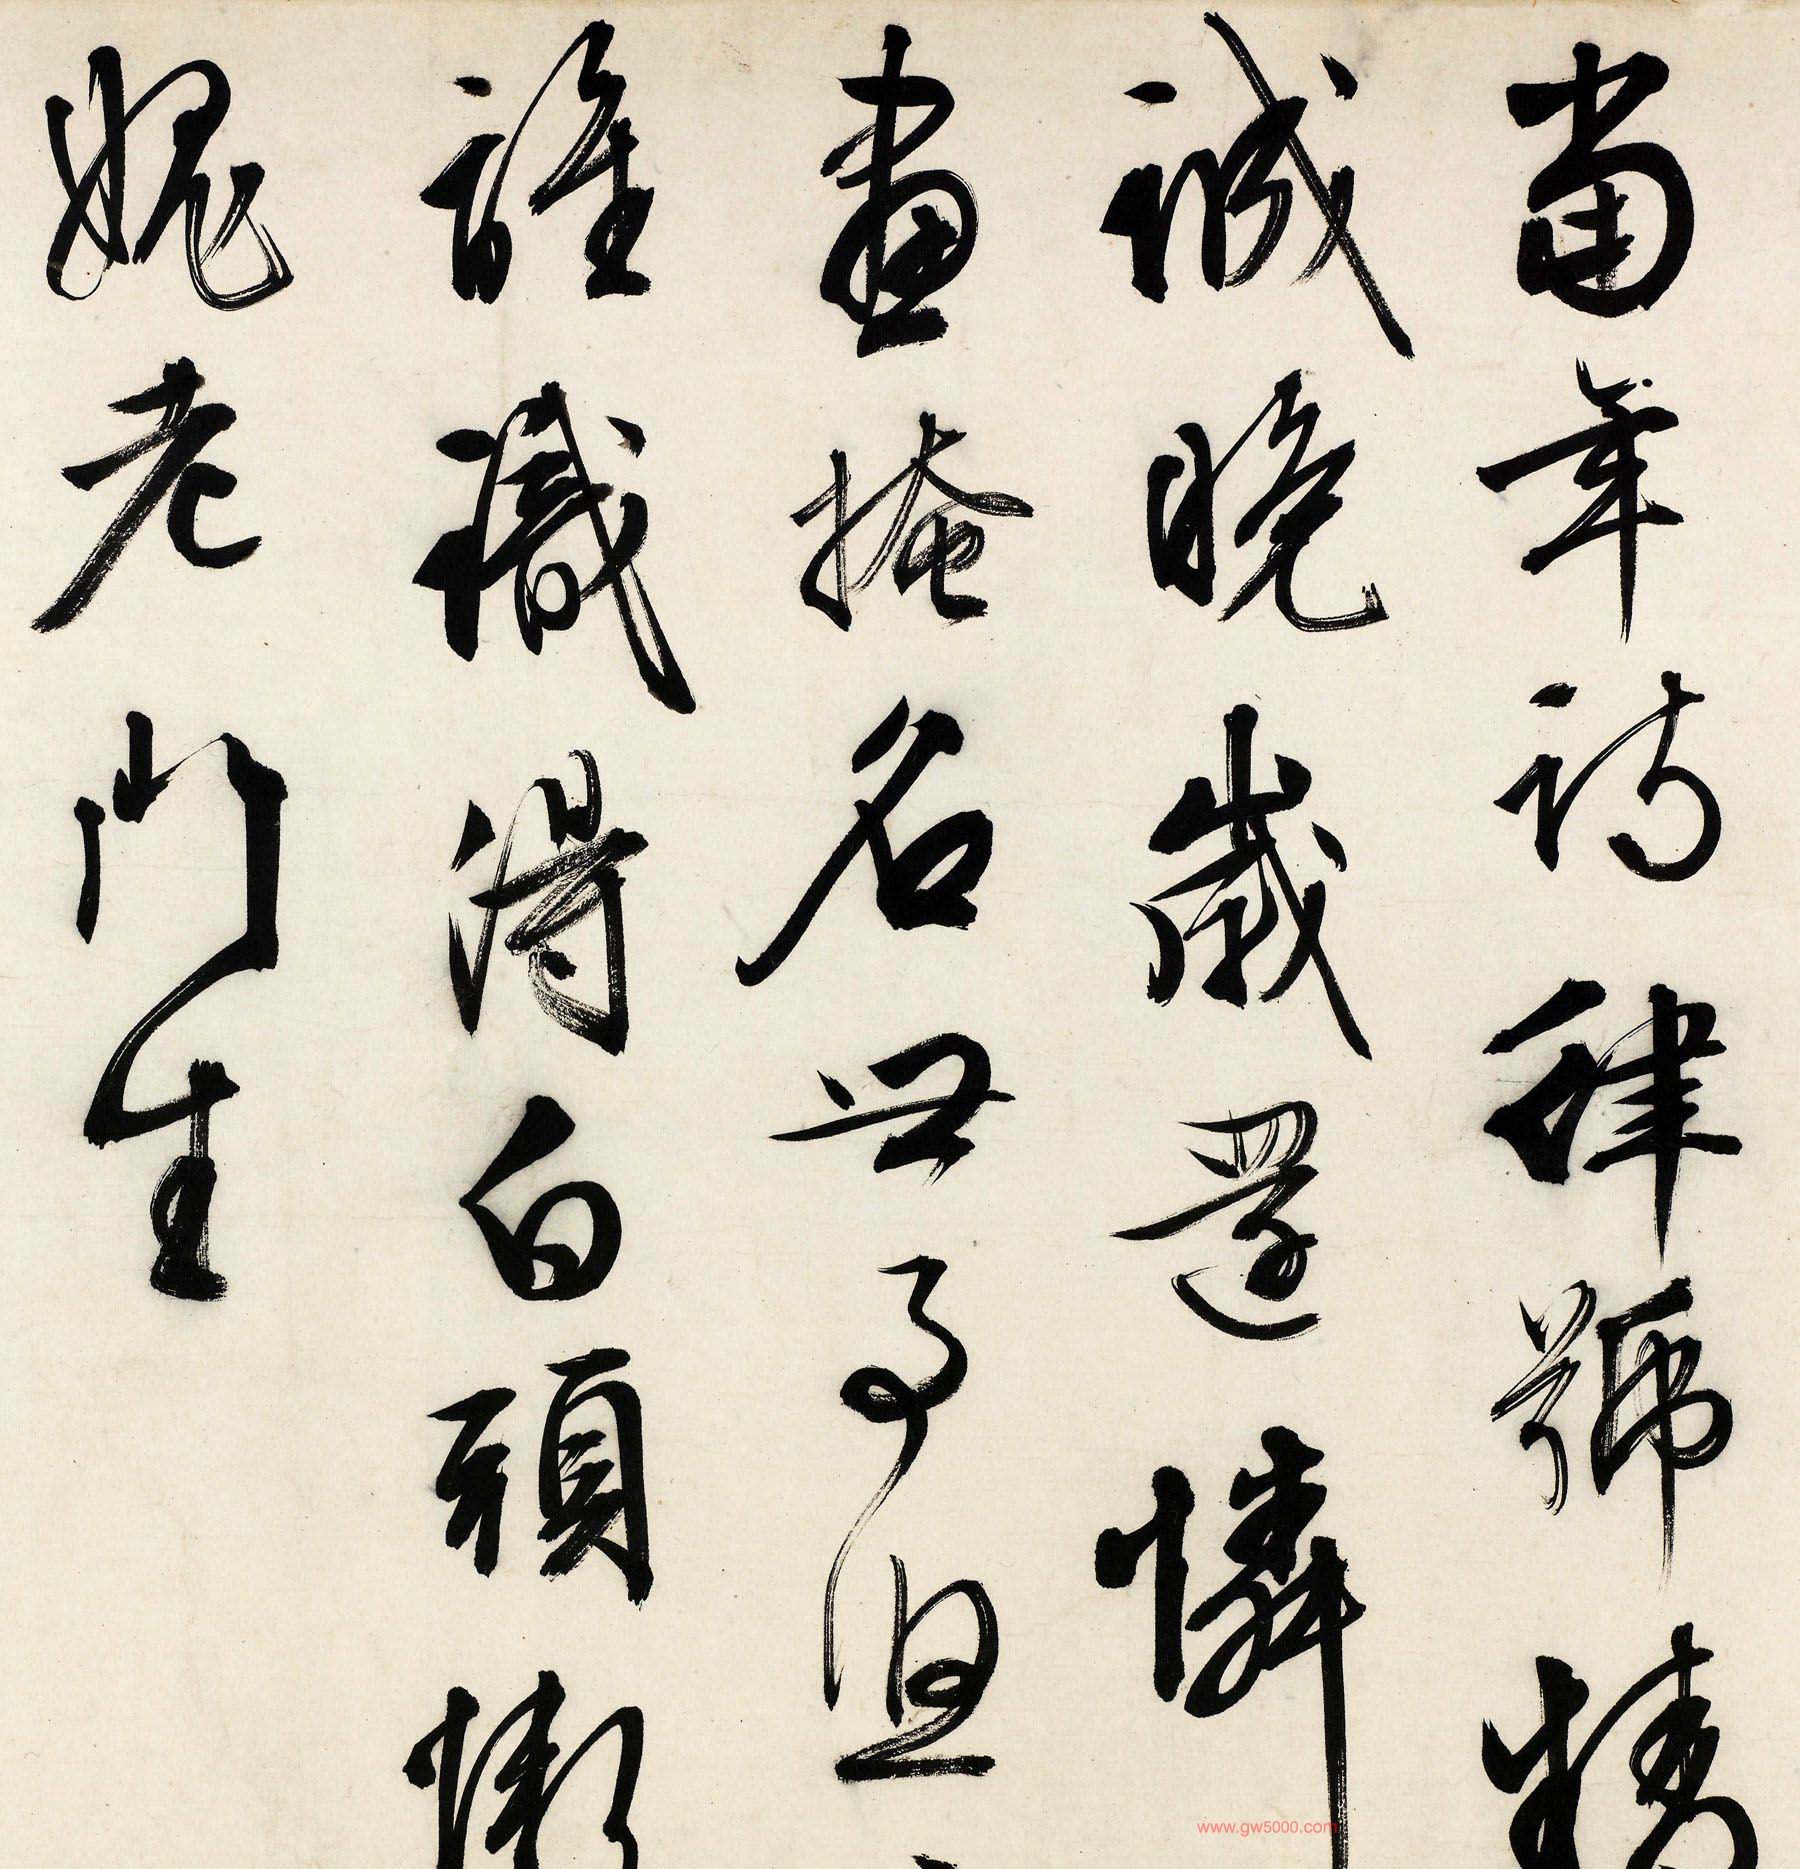 當年詩律號精
誠晚歲還憐
畫掩名世事但
誰識得白頭慚
愧老門生
www.gw5000.com